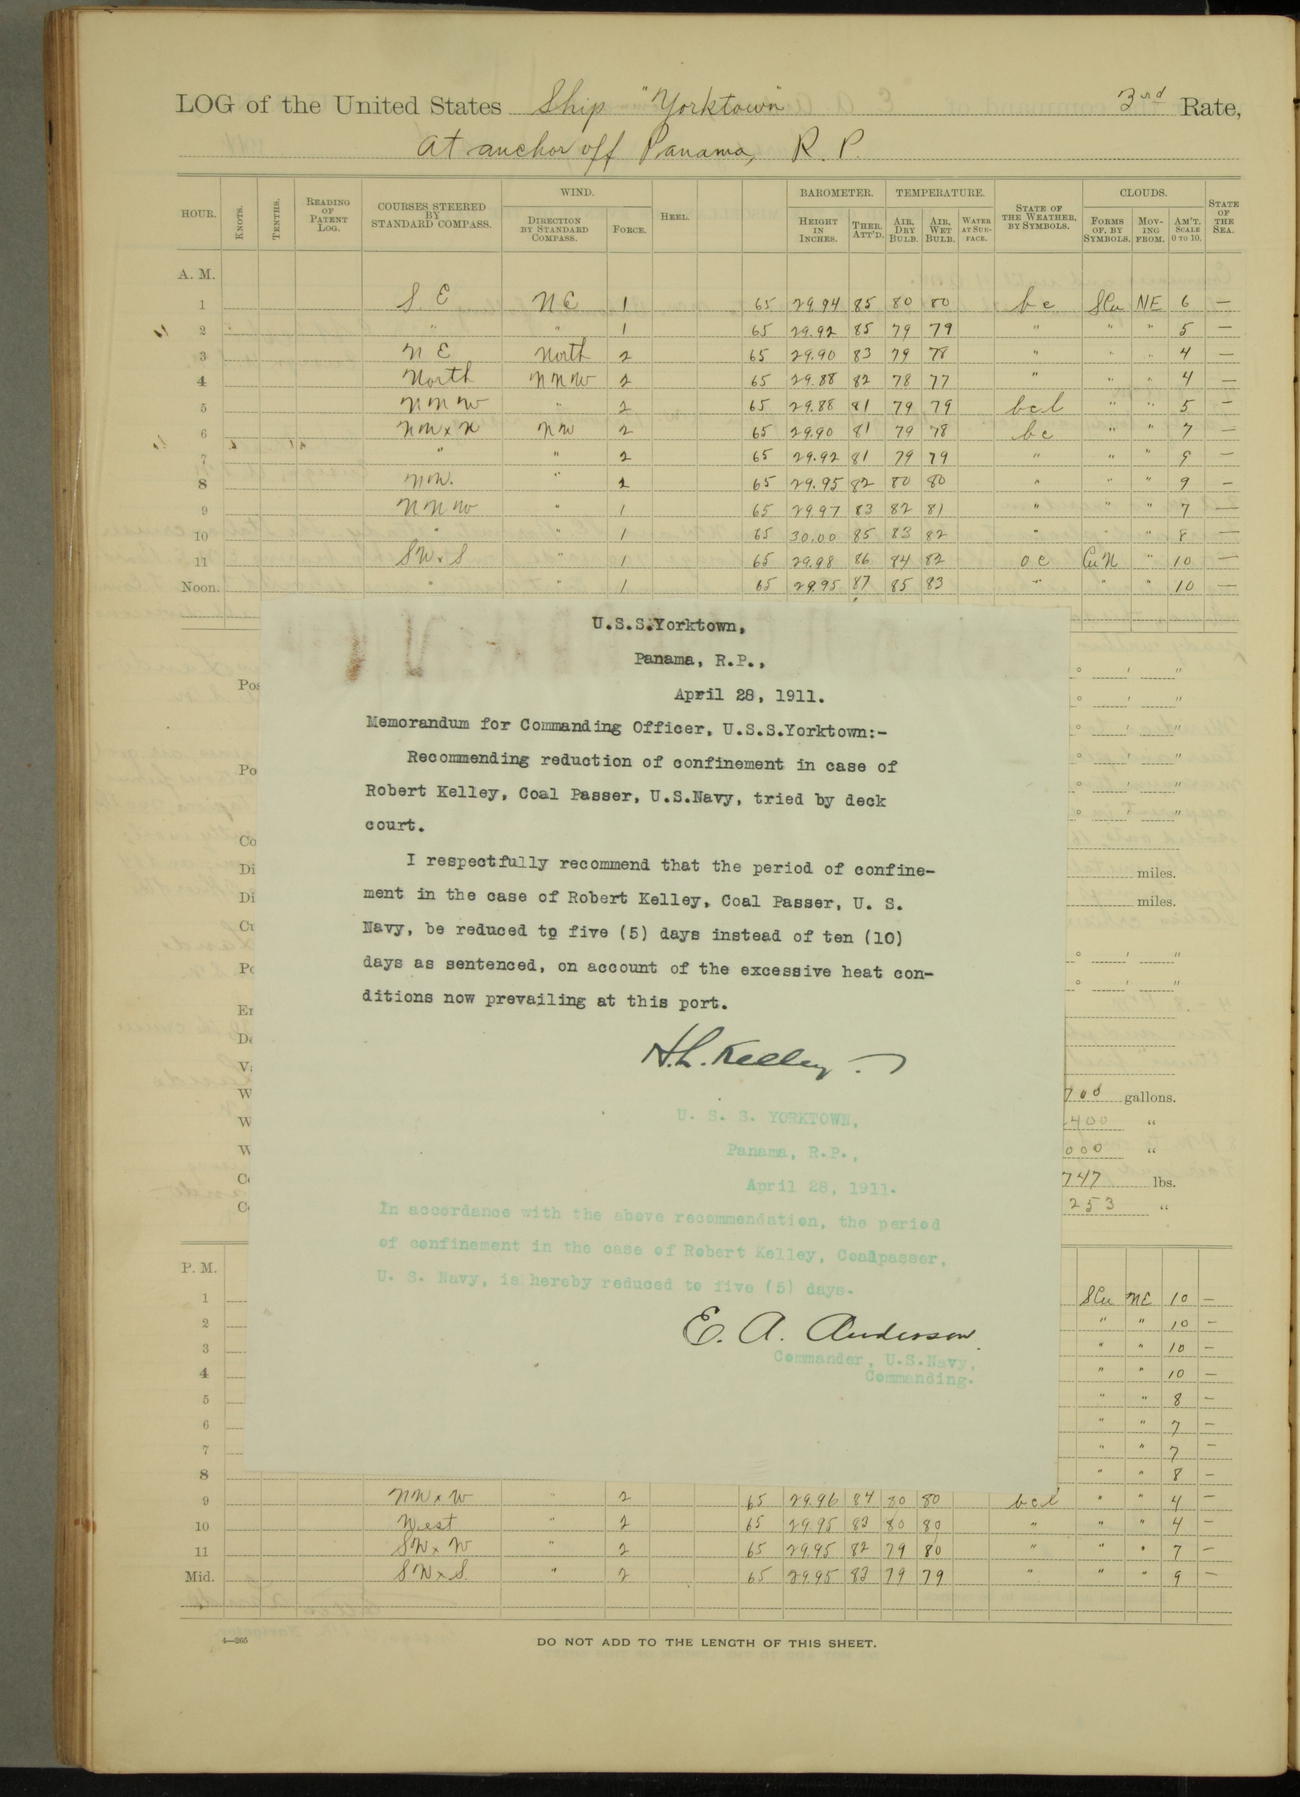 LOG of the United States Ship "Yorktown" 3rd Rate,
At anchor off Panama, R. P.
HOUR. KNOTS. TENTHS. READING OF PATENT LOG. COURSES STEERED BY STANDARD COMPASS. WIND. DIRECTION BY STANDARD COMPASS. FORCE. HEEL. BAROMETER. HEIGHT IN INCHES. THER. ATT'D. TEMPERATURE. AIR, DRY BULB. AIR, WET BULB. WATER AT SURFACE. STATE OF THE WEATHER, BY SYMBOLS. CLOUDS. FORMS OF, BY SYMBOLS. MOVING FROM. AM'T. SCALE 0 TO 10. STATE OF THE SEA.
A. M.
1 S E N E 1 65 29.94 85 80 80 b c SCu NE 6 —
2 " " 1 65 29.92 85 79 79 " " " 5 —
3 N E North 2 65 29.90 83 79 78 " " " 4 —
4 North NNW 2 65 29.88 82 78 77 " " " 4 —
5 NNW " 2 65 29.88 81 79 79 bcl " " 5 —
6 NWxN NW 2 65 29.90 81 79 78 bc " " 7 —
7 " " 2 65 29.92 81 79 79 " " " 9 —
8 NW. " 1 65 29.95 82 80 80 " " " 9 —
9 NNW " 1 65 29.97 83 82 81 " " " 7 —
10 " " 1 65 30.00 85 83 82 " " " 8 —
11 SWxS " 1 65 29.98 86 84 82 o c CuN " 10 —
Noon. " " 1 65 29.95 87 85 83 " " " 10 —
U.S.S.Yorktown,
Panama, R.P.,
April 28, 1911.
Memorandum for Commanding Officer, U.S.S.Yorktown:-
Recommending reduction of confinement in case of
Robert Kelley, Coal Passer, U.S.Navy, tried by deck
court.
I respectfully recommend that the period of confine-
ment in the case of Robert Kelley, Coal Passer, U. S.
Navy, be reduced to five (5) days instead of ten (10)
days as sentenced, on account of the excessive heat con-
ditions now prevailing at this port.
H. L. Kelley
U. S. S. YORKTOWN,
Panama, R.P.,
April 28, 1911.
In accordance with the above recommendation, the period
of confinement in the case of Robert Kelley, Coalpasser,
U. S. Navy, is hereby reduced to five (5) days.
E. A. Anderson
Commander, U.S.Navy,
Commanding.
miles.
miles.
700 gallons.
400 "
000 "
747 lbs.
253 "
P. M.
1 SCu NE 10 —
2 " " 10 —
3 " " 10 —
4 " " 10 —
5 " " 8 —
6 " " 7 —
7 " " 7 —
8 " " 8 —
9 NWxW " 2 65 29.96 84 80 80 bcl " " 4 —
10 West " 2 65 29.95 83 80 80 " " " 4 —
11 SWxW " 2 65 29.95 82 79 80 " " " 7 —
Mid. SWxS " 2 65 29.95 82 79 79 " " " 9 —
4—265
DO NOT ADD TO THE LENGTH OF THIS SHEET.